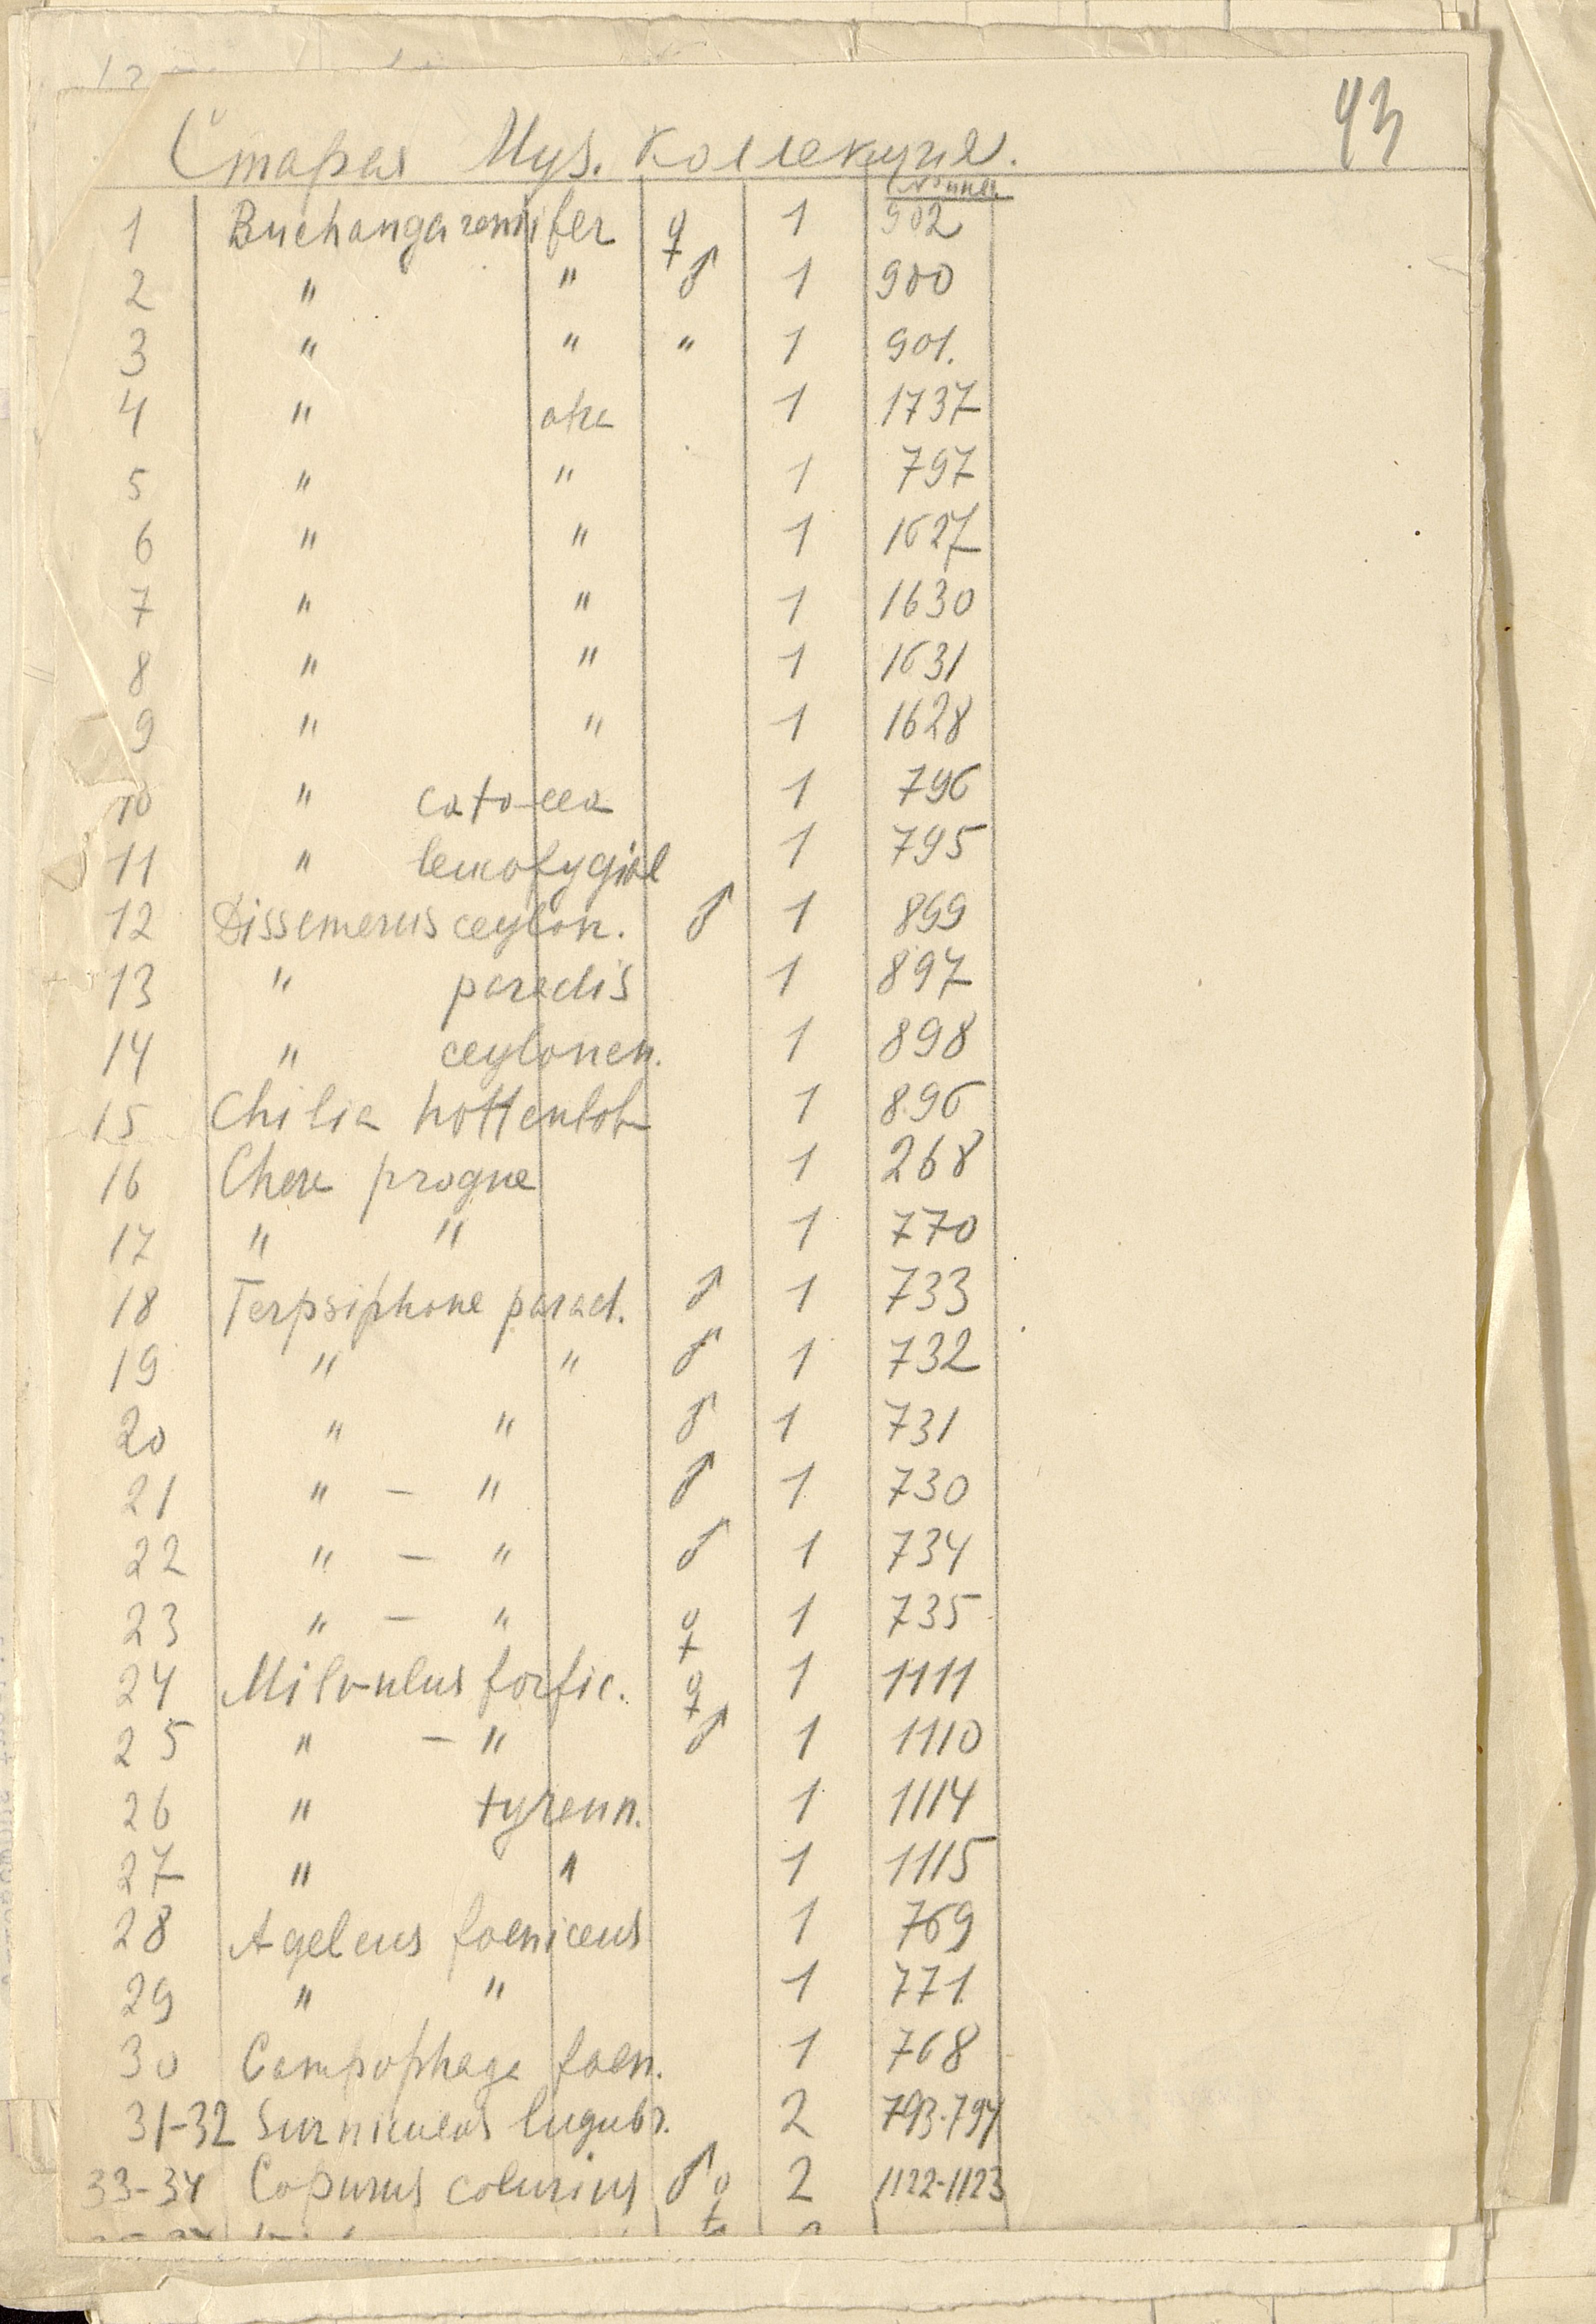 93
Старая Муз. Коллекция.
1 Buchanga remifer ♀ 1 902
2 " " ♂ 1 900
3 " " " 1 901.
4 " atra 1 1737
5 " " 1 797
6 " " 1 1627
7 " " 1 1630
8 " " 1 1631
9 " " 1 1628
10 " 1 796
11 " leucopygial 1 795
12 Dissemerus ceylon. ♂ 1 899
13 " paradis 1 897
14 " ceylonen. 1 898
15 Chibia hottentot 1 896
16 Chera progne 1 268
17 " " 1 770
18 Terpsiphone parad. ♂ 1 733
19 " " ♂ 1 732
20 " " ♂ 1 731
21 " — " ♂ 1 730
22 " — " ♂ 1 734
23 " — " ♀ 1 735
24 Milvulus forfic. ♀ 1 1111
25 " — " ♂ 1 1110
26 " tyrann. 1 1114
27 " " 1 1115
28 Ageleus foeniceus 1 769
29 " " 1 771
30 Campophaga foen. 1 768
31-32 Surniculus lugubr. 2 793-794
33-34 Copurus colurius ♂ ♀ 2 1122-1123